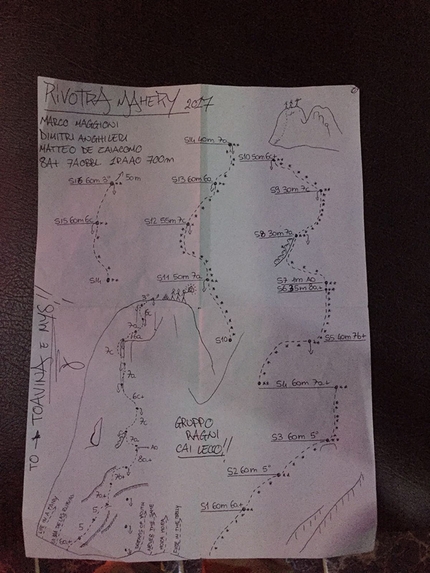 RIVOTRA MAHERY 2017
MARCO MAGGIONI
DIMITRI ANGHILERI
MATTEO DE ZAIACOMO
8A+ 7AOBBL. 1PAAO 700m
S16 60m 3° 50m
S15 60m 6c
S14
S14 40m 7a
S13 60m 6a
S12 55m 7c
S11 50m 7a
S10
S10 50m 6c
S9 30m 7c
S8 30m 7a
S7 AO
8a+
S5 60m 7b+
S4 60m 7a+
S3 60m 5°
S2 60m 5°
S1 60m 6a+
TO → TOAVINA E MYS!!
3°
6c
7a
6a
7c
7a
6c+
7c
7a
AO
8a+
7b+
7a+
5
5
6a+
GRUPPO
RAGNI
CAI LECCO!!